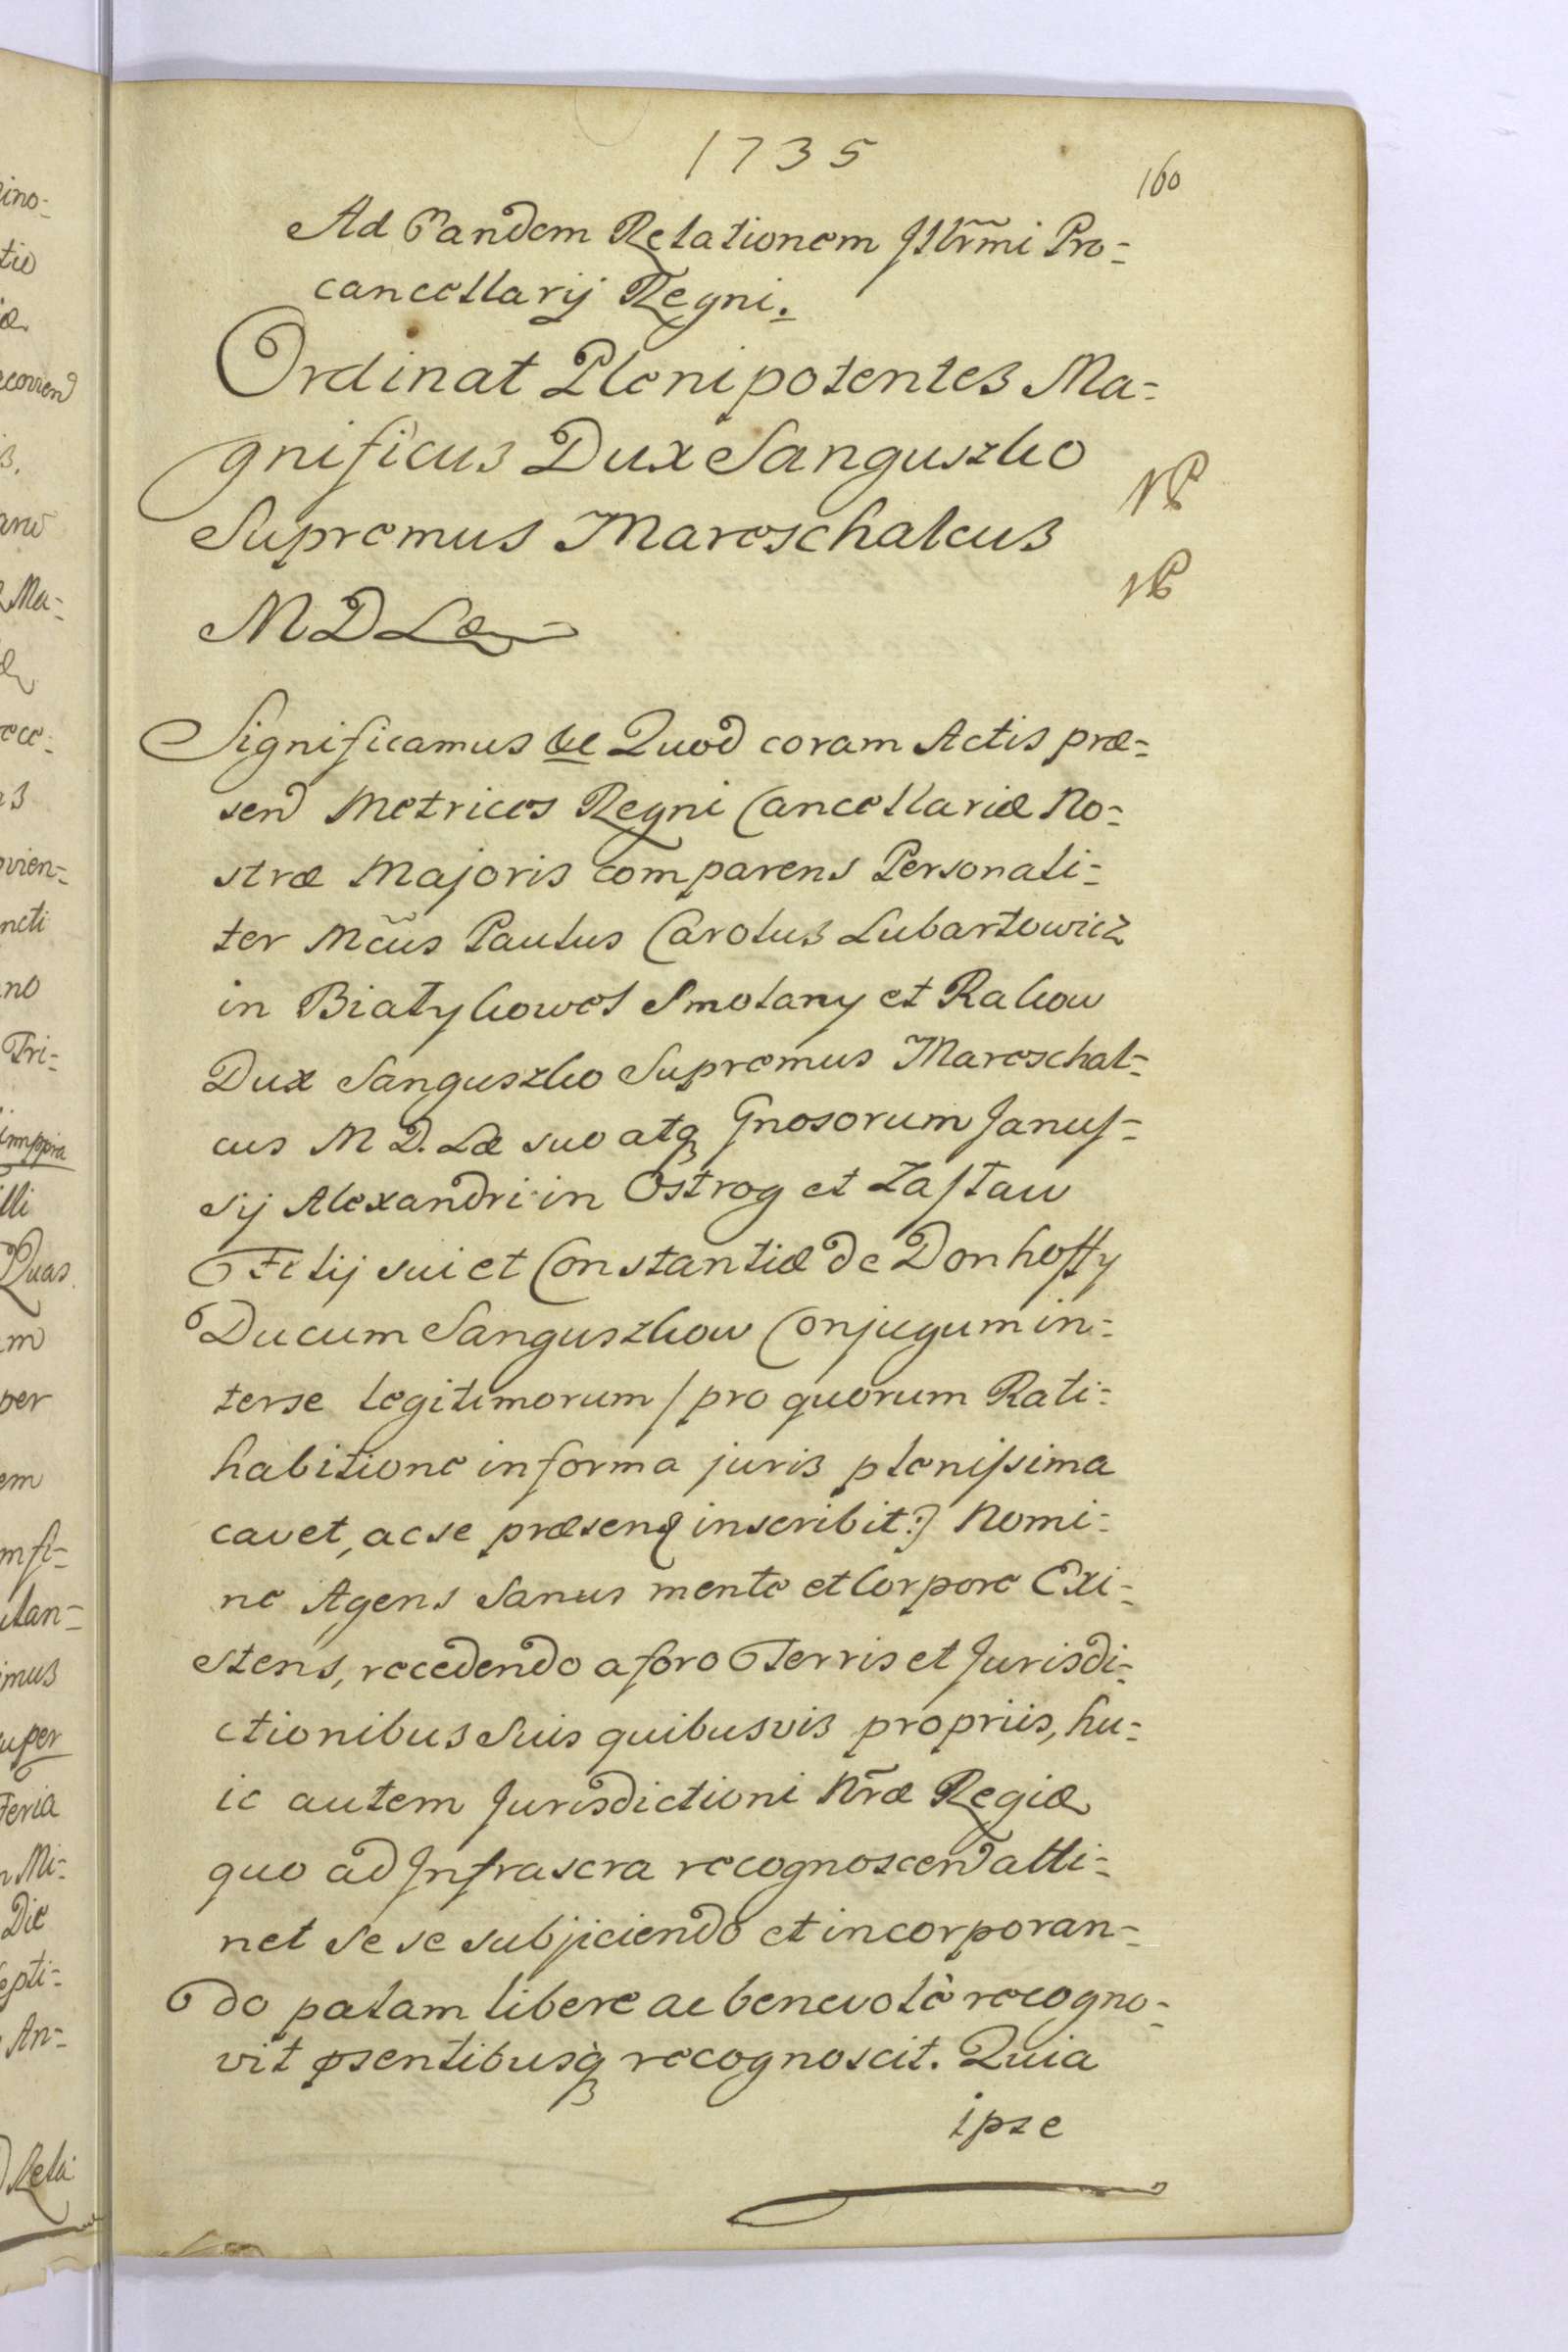 1735
160
Ad Eandem Relationem Jllr̃mi Pro=
cancellarij Regni.
Ordinat Plenipotentes Ma=
gnificus Dux Sanguszko
Supremus Mareschalcus
M D Læ
Significamus &c Quod coram Actis præ=
send Metrices Regni Cancellariæ No=
stræ Majoris comparens Personali=
ter Mcus Paulus Carolus Lubartowicz
in Białykowel Smolany et Rakow
Dux Sanguszko Supremus Mareschal=
cus M D. Læ suo atq Gnosorum Januſ=
sij Alexandri in Ostrog et Zaſław
Filij sui et Constantiæ de Donhoffy
Ducum Sanguszkow Conjugum in=
terse legitimorum / pro quorum Rati=
habitione in forma juris pleniſsima
cavet, ac se præsend inscribit :) Nomi=
ne Agens Sanus mente et Corpore Exi=
stens, recedendo a foro Terris et Jurisdi=
ctionibus Suis quibusvis propriis, hu=
ic autem Jurisdictioni Nr̃æ Regiæ
quo ad Jnfrascra recognoscend atti=
net se se subjiciendo et incorporan=
do palam libere ac benevolè recogno=
vit psentibusq recognoscit. Quia
ipse
ino=
tio
Ma=
vien=
ncti
no
Tri=
lli
Quas
m
per
em
mfi=
imus
uper
Teria
Mi=
Die
epti=
An=
Rela